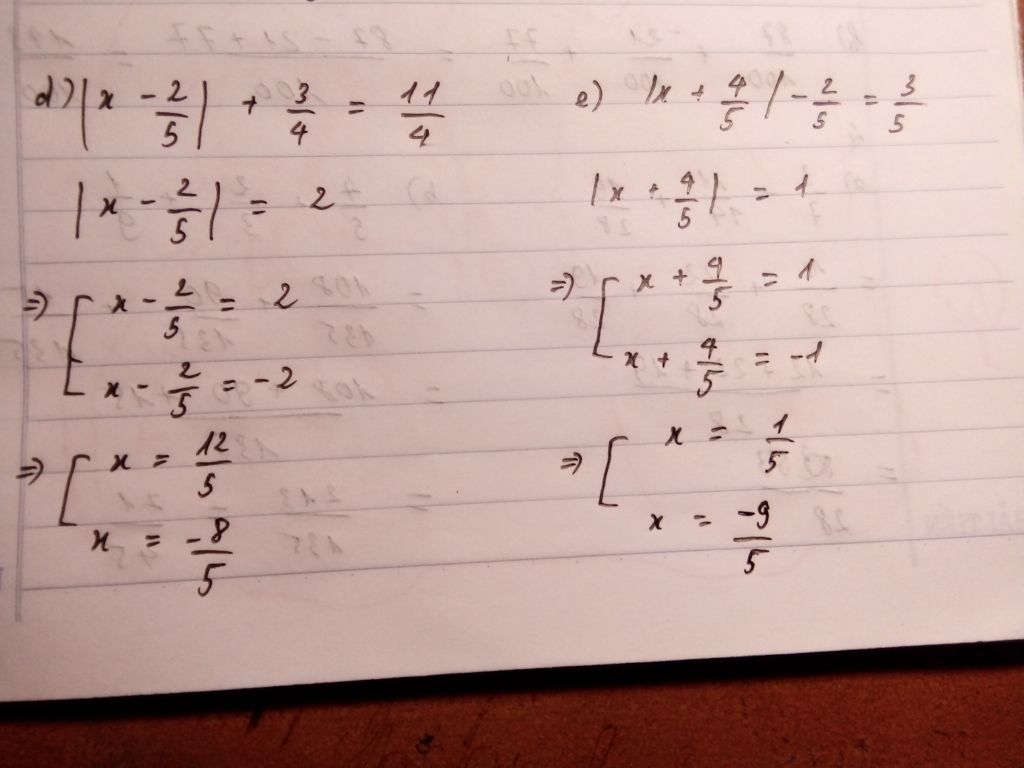 d) |x - 2/5| + 3/4 = 11/4
|x - 2/5| = 2
=> [ x - 2/5 = 2
x - 2/5 = -2
=> [ x = 12/5
x = -8/5
e) |x + 4/5| - 2/5 = 3/5
|x + 4/5| = 1
=> [ x + 4/5 = 1
x + 4/5 = -1
=> [ x = 1/5
x = -9/5